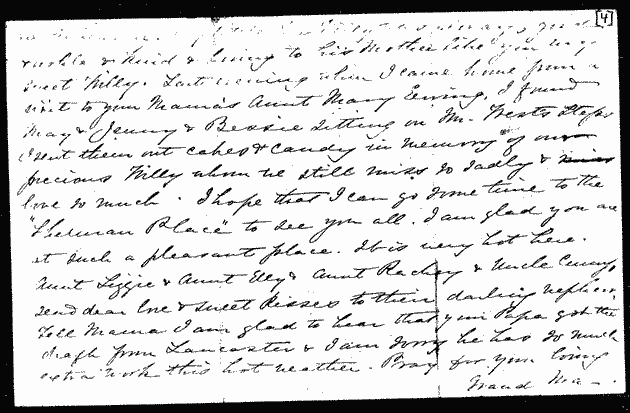 [4]
& kind & loving to his Mother like you my
sweet Willy. Last evening when I came home from a
visit to your Mama's Aunt Mary Ewing, I found
May & Jenny & Bessie sitting on Mr. Wests Steps
I sent them out cakes & candy in memory of our
precious Willy whom we still miss so sadly &
love so much. I hope that I can go some time to the
"Sherman Place" to see you all. I am glad you are
at such a pleasant place. It is very hot here.
Aunt Lizzie & Aunt Elly & Aunt Rachey & Uncle
send dear love & sweet kisses to their darling nephew.
Tell Mama I am glad to hear that your Papa got the
draft from Lancaster & I am sorry he has so much
extra work this hot weather. Pray for your loving
Grand Ma